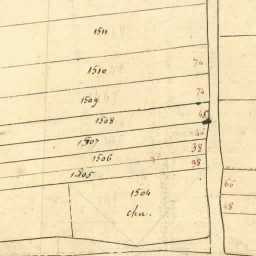 1511
1510
74
1509
74
1508
45
1507
1506
38
1505
48
1504
cha.
66
48